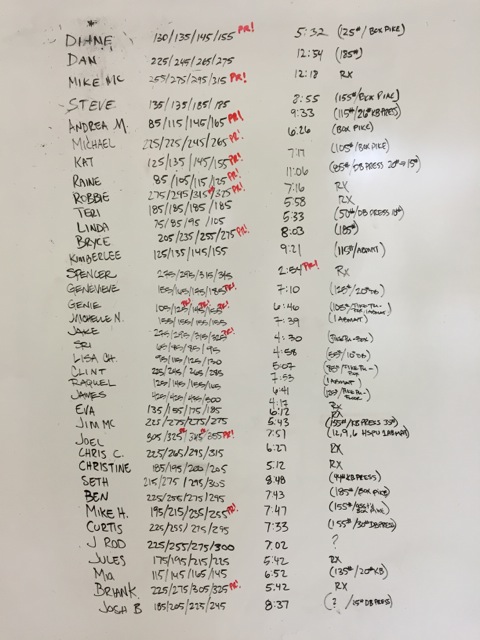 DIANE 130/135/145/155 PR! 5:32 (125# / BOX PIKE)
DAN 225/245/265/275 12:54 (185#)
MIKE MC 255/275/295/315 PR! 12:18 RX
STEVE 135/135/185/185 8:55 (155#/BOX PIKE)
ANDREA M. 85/115/145/165 PR! 9:33 (115#/26# KB PRESS)
MICHAEL 225/225/245/265 PR! 6:26 (BOX PIKE)
KAT 125/135/145/155 PR! 7:17 (105#/BOX PIKE)
RAINE 85/105/115/125 PR! 11:06 (85#/DB PRESS 20# → 15#)
ROBBIE 275/295/315/325 PR! 7:16 RX
TERI 185/185/185/185 5:58 RX
LINDA 75/85/95/105 5:33 (50#/DB PRESS
BRYCE 205/235/255/275 PR! 8:03 (185#)
KIMBERLEE 125/135/145/155 9:21 (115#/ABMAT)
SPENCER 275/295/315/345 2:54 PR! RX
GENEVIEVE 155/165/175/185 PR! 7:10 (125#/20# DB)
GENIE 105/125/145/155 PR! 6:46 (105#/
MICHELLE N. 155/155/155/155 7:39 (1 ABMAT)
JAKE 275/295/315/325 PR! 4:30
SRI 65/85/85/95 4:58 (55#/10# DB)
LISA CH. 95/115/125/130 5:07
CLINT 225/245/265/285 7:53
RAQUEL 125/145/155/165 6:41 (1 ABMAT)
JAMES 4:17
EVA 135/155/175/185 6:12 RX
JIM MC 225/275/275/275 5:43 (155#/KB PRESS 35#)
JOEL 305/325/345/355 PR! 7:51 (12,9,6 HSPU 1 ABMAT)
CHRIS C. 225/265/295/315 6:27 RX
CHRISTINE 185/195/200/205 5:12 RX
SETH 215/275/295/305 8:48 (44# KB PRESS)
BEN 225/255/275/295 7:43 (185#/BOX PIKE)
MIKE H. 195/215/235/255 PR! 7:47 (155#/
CURTIS 225/255/275/295 7:33 (155#/30# DB PRESS)
J ROD 225/255/275/300 7:02 ?
JULES 175/195/215/225 5:42 RX
MIA 115/145/165/145 6:52 (135#/20# KB)
BRIAN K. 225/275/305/325 PR! 5:42 RX
JOSH B 185/205/225/245 8:37 (?/15# DB PRESS)